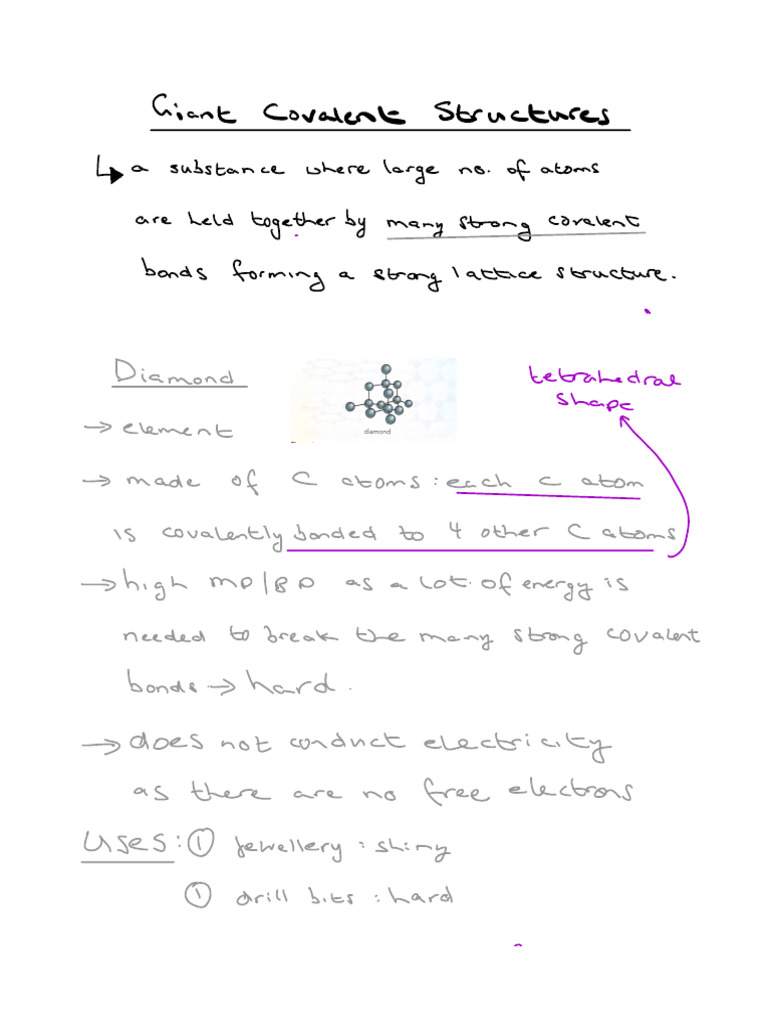 Giant Covalent Structures
↳ a substance where large no. of atoms
are held together by many strong covalent
bonds forming a strong lattice structure.
Diamond
diamond
tetrahedral
shape
→ element
→ made of C atoms : each C atom
is covalently bonded to 4 other C atoms
→ high MP/BP as a lot of energy is
needed to break the many strong covalent
bonds → hard.
→ does not conduct electricity
as there are no free electrons
uses : ① jewellery : shiny
① drill bits : hard